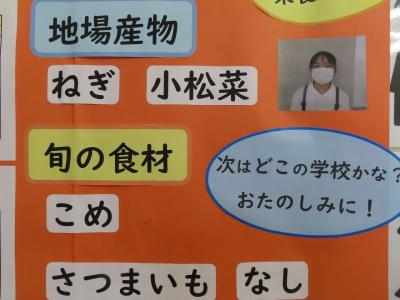 地場産物
ねぎ 小松菜
旬の食材
次はどこの学校かな?
おたのしみに!
こめ
さつまいも なし